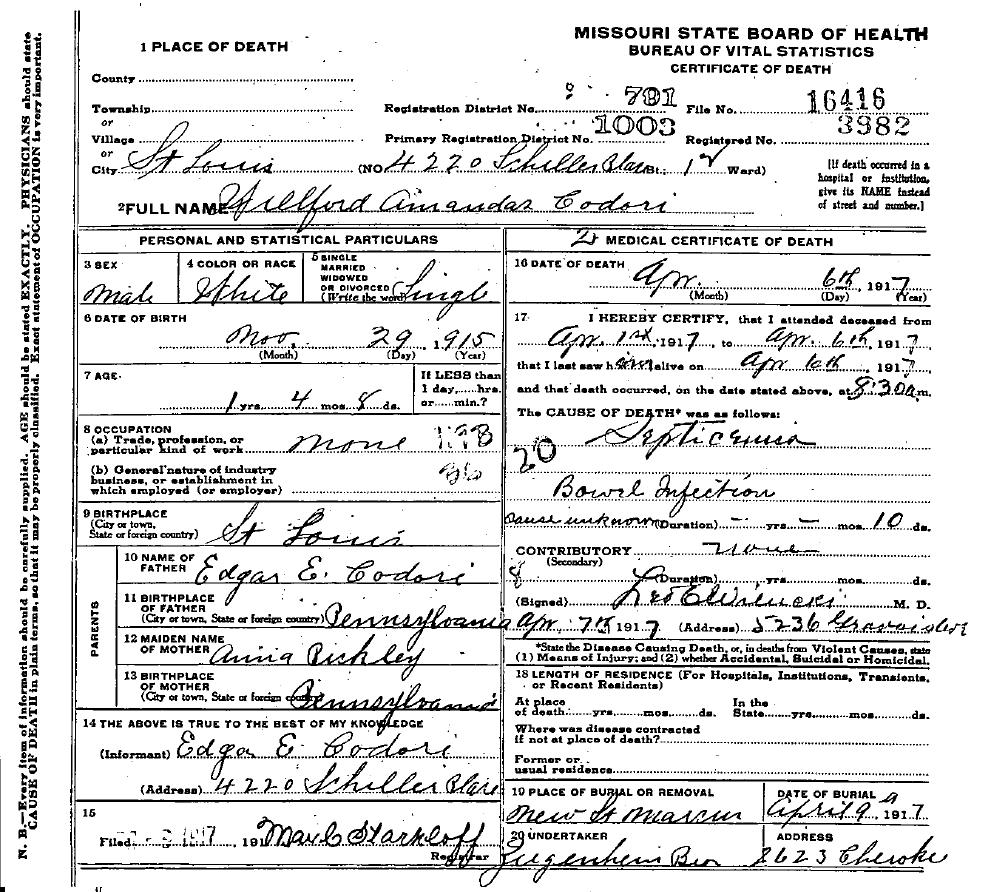 MISSOURI STATE BOARD OF HEALTH
BUREAU OF VITAL STATISTICS
CERTIFICATE OF DEATH
1 PLACE OF DEATH
County
Township
or
Village
or
City St Louis
Registration District No. 791
File No. 16416
Primary Registration District No. 1003
Registered No. 3982
(NO. 4220 Schiller Place St. Ward)
[If death occurred in a
hospital or institution,
give its NAME instead
of street and number.]
2 FULL NAME Willford Amandas Codori
PERSONAL AND STATISTICAL PARTICULARS
3 SEX
Male
4 COLOR OR RACE
White
5 SINGLE
MARRIED
WIDOWED
OR DIVORCED
(Write the word) Single
6 DATE OF BIRTH
Nov. 29, 1915
(Month) (Day) (Year)
7 AGE
1 yrs. 4 mos. 8 ds.
If LESS than
1 day,.....hrs.
or.....min.?
8 OCCUPATION
(a) Trade, profession, or
particular kind of work none
(b) General nature of industry
business, or establishment in
which employed (or employer)
36
9 BIRTHPLACE
(City or town,
State or foreign country) St Louis
PARENTS
10 NAME OF
FATHER Edgar E. Codori
11 BIRTHPLACE
OF FATHER
(City or town, State or foreign country) Pennsylvania
12 MAIDEN NAME
OF MOTHER Anna Pickley
13 BIRTHPLACE
OF MOTHER
(City or town, State or foreign country) Pennsylvania
14 THE ABOVE IS TRUE TO THE BEST OF MY KNOWLEDGE
(Informant) Edgar E Codori
(Address) 4220 Schiller Place
15
Filed 1917 191 Max C Starkloff
Registrar
2 MEDICAL CERTIFICATE OF DEATH
16 DATE OF DEATH
Apr. 6th, 1917
(Month) (Day) (Year)
17 I HEREBY CERTIFY, that I attended deceased from
Apr. 1st, 1917, to Apr. 6th, 1917
that I last saw him alive on Apr 6th, 1917
and that death occurred, on the date stated above, at 8:30 a m.
The CAUSE OF DEATH* was as follows:
Septicemia
20
Bowel Infection
cause unknown (Duration) - yrs. - mos. 10 ds.
CONTRIBUTORY none
(Secondary)
8
(Duration) yrs. mos. ds.
(Signed) M. D.
Apr. 7th 1917 (Address) 5236 Gravois
*State the Disease Causing Death, or, in deaths from Violent Causes, state
(1) Means of Injury; and (2) whether Accidental, Suicidal or Homicidal.
18 LENGTH OF RESIDENCE (For Hospitals, Institutions, Transients,
or Recent Residents)
At place
of death.....yrs.....mos.....ds.
In the
State.....yrs.....mos.....ds.
Where was disease contracted
if not at place of death?
Former or
usual residence
19 PLACE OF BURIAL OR REMOVAL
New St Marcus
DATE OF BURIAL
April 9, 1917
20 UNDERTAKER
Zugenhein Bros
ADDRESS
2623 Cherokee
N. B.—Every item of information should be carefully supplied. AGE should be stated EXACTLY. PHYSICIANS should state
CAUSE OF DEATH in plain terms, so that it may be properly classified. Exact statement of OCCUPATION is very important.